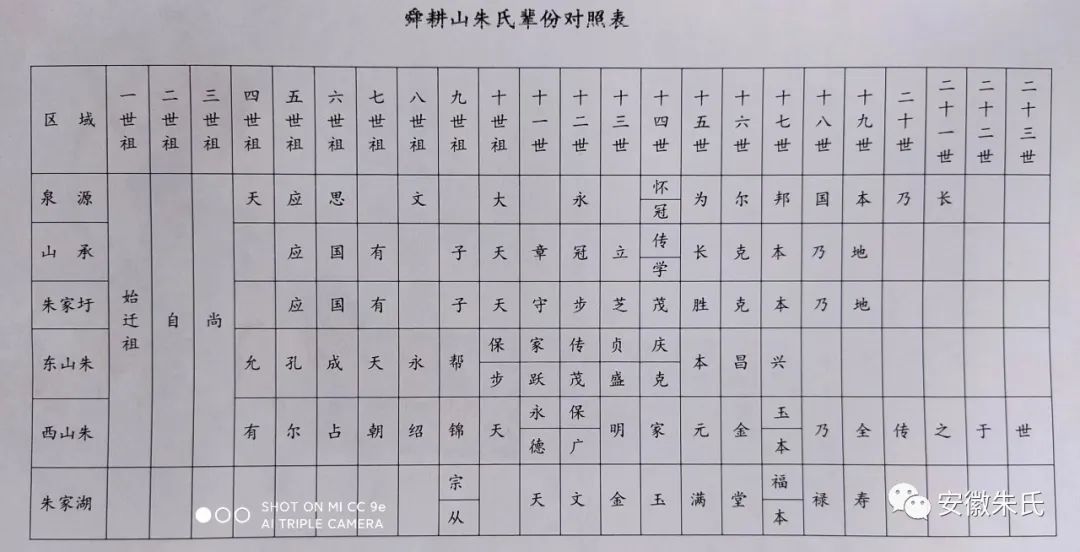 舜耕山朱氏辈份对照表
区域 一世祖 二世祖 三世祖 四世祖 五世祖 六世祖 七世祖 八世祖 九世祖 十世祖 十一世 十二世 十三世 十四世 十五世 十六世 十七世 十八世 十九世 二十世 二十一世 二十二世 二十三世
始迁祖 自 尚
泉源 天 应 思 文 大 永 怀 冠 为 尔 邦 国 本 乃 长
山承 应 国 有 子 天 章 冠 立 传 学 长 克 本 乃 地
朱家圩 应 国 有 子 天 守 步 芝 茂 胜 克 本 乃 地
东山朱 允 孔 成 天 永 帮 保 步 家 跃 传 茂 贞 盛 庆 克 本 昌 兴
西山朱 有 尔 占 朝 绍 锦 天 永 德 保 广 明 家 元 金 玉 本 乃 全 传 之 于 世
朱家湖 宗 从 天 文 金 玉 满 堂 福 本 禄 寿
SHOT ON MI CC 9e
AI TRIPLE CAMERA
安徽朱氏